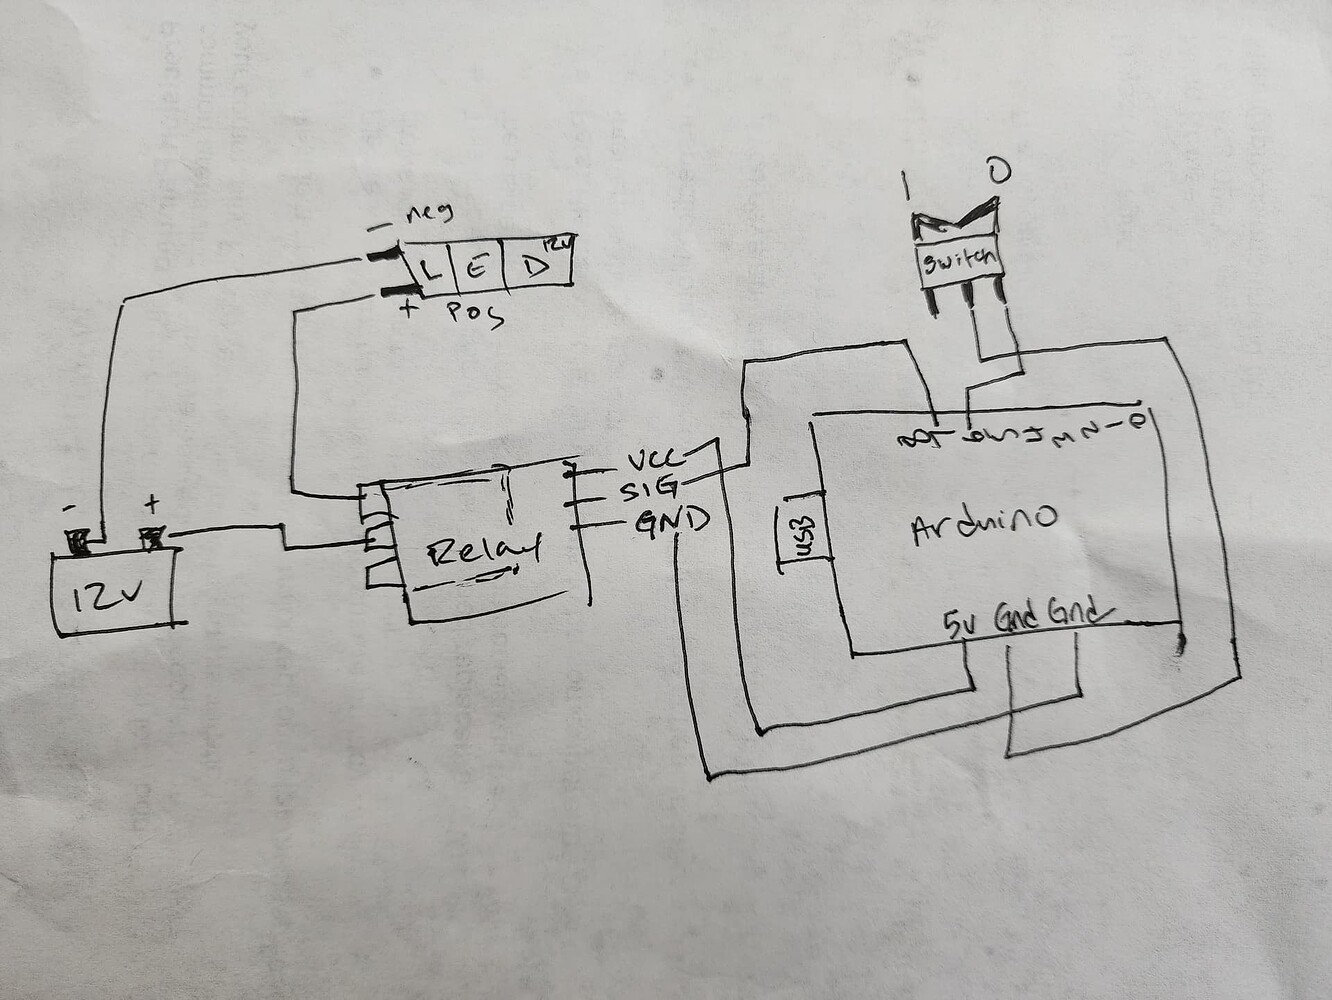 1 0
Switch
- neg
L E D 12V
+ POS
VCC
SIG
GND
- +
12V
Relay
USB
Arduino
5v Gnd Gnd